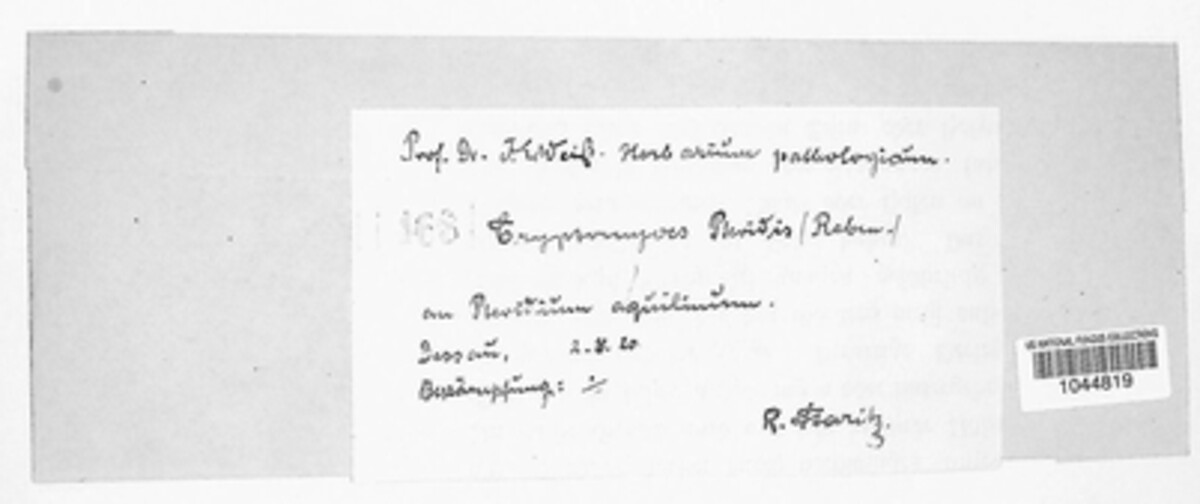 Prof. Dr. J. E. Weiß. Herbarium pathologicum.
Cryptomyces Pteridis (Raben.)
an Pteridium aquilinum.
Dessau, 2. X. 20
Bekämpfung: ./.
R. Staritz.
US NATIONAL FUNGUS COLLECTIONS
1044819